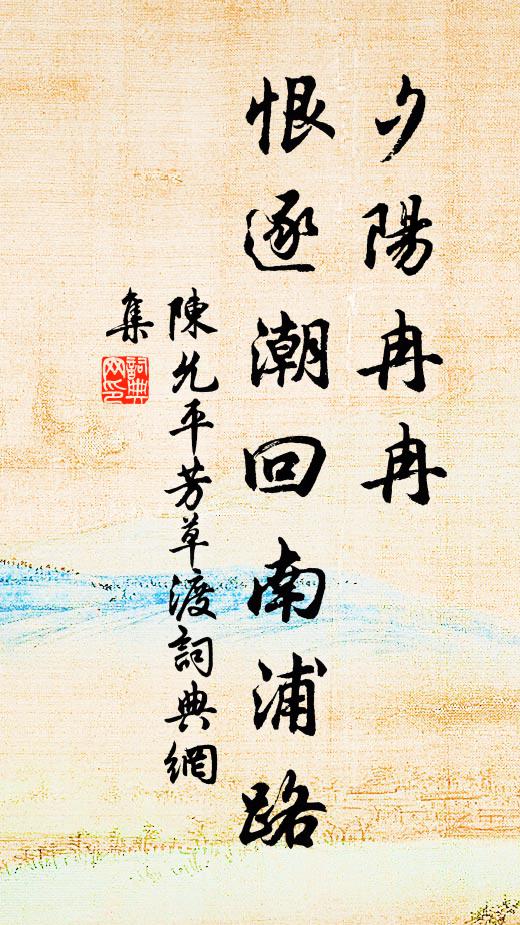 夕陽冉冉
恨逐潮回南浦路
陳允平芳草渡詞典網
集
詞典
网印